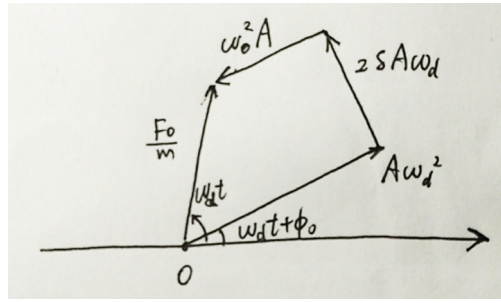 ω₀²A
2SAω_d
F₀/m
Aω_d²
ω_dt
ω_dt+ϕ₀
O